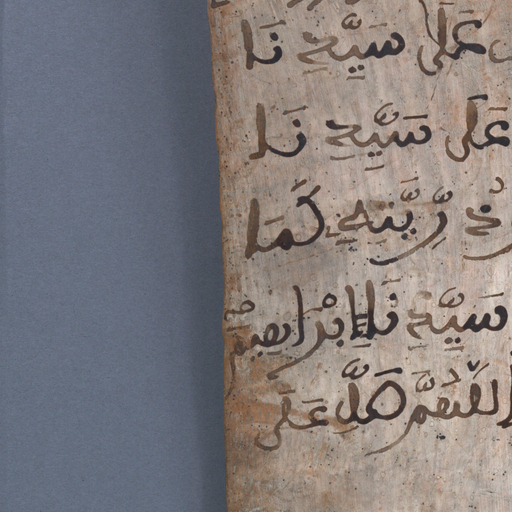 عَلَى سَيِّدِ نَا
عَلَى سَيِّدِ نَا
ذُرِّيَّتِهِ كَمَا
سَيِّدِ نَا إِبْرَاهِيمَ
اللَّهُمَّ صَلِّ عَلَى